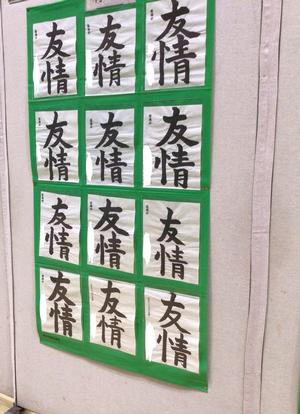 友情
友情
友情
友情
友情
友情
友情
友情
友情
友情
友情
友情